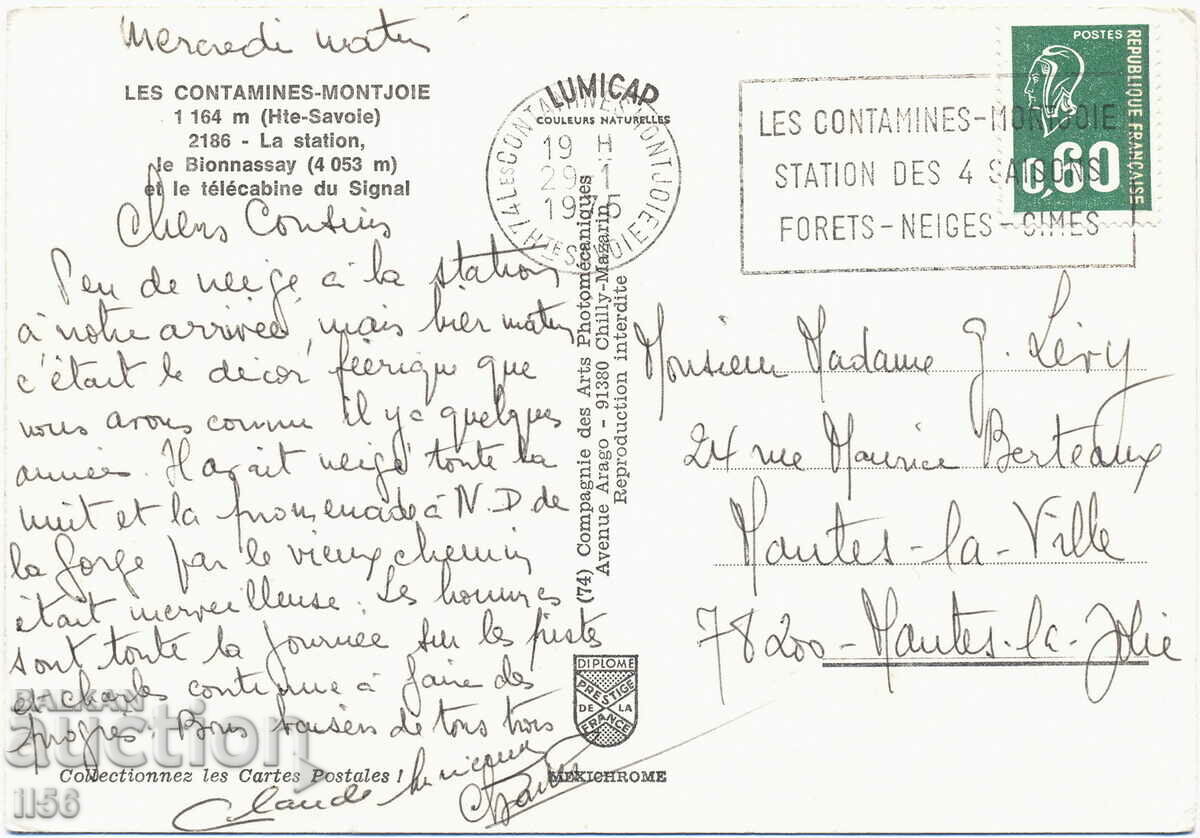 Mercredi matin
LES CONTAMINES-MONTJOIE
1 164 m (Hte-Savoie)
2186 - La station,
le Bionnassay (4 053 m)
et le télécabine du Signal
Chers Cousins
Peu de neige à la station
à notre arrivée, mais hier matin
c'était le décor féerique que
nous avons connu il y a quelques
années. Il avait neigé toute la
nuit et la promenade à N.D de
la Gorge par le vieux chemin
était merveilleuse. Les hommes
sont toute la journée sur les pistes
et Charles continue à faire des
progrès. Bons baisers de tous trois
Claude
Collectionnez les Cartes Postales !
LUMICAP
COULEURS NATURELLES
74 LES CONTAMINES MONTJOIE
19 H
29-1
1975
HTE SAVOIE
(74) Compagnie des Arts Photomécaniques
Avenue Arago - 91380 Chilly-Mazarin
Reproduction interdite
DIPLOME
PRESTIGE
DE LA
FRANCE
MEXICHROME
LES CONTAMINES-MONTJOIE
STATION DES 4 SAISONS
FORETS-NEIGES-CIMES
POSTES
REPUBLIQUE FRANÇAISE
0,60
Monsieur Madame G. Lévy
24 rue Maurice Berteaux
Mantes-la-Ville
78200-Mantes-la-Jolie
BALKAN
auction
1156